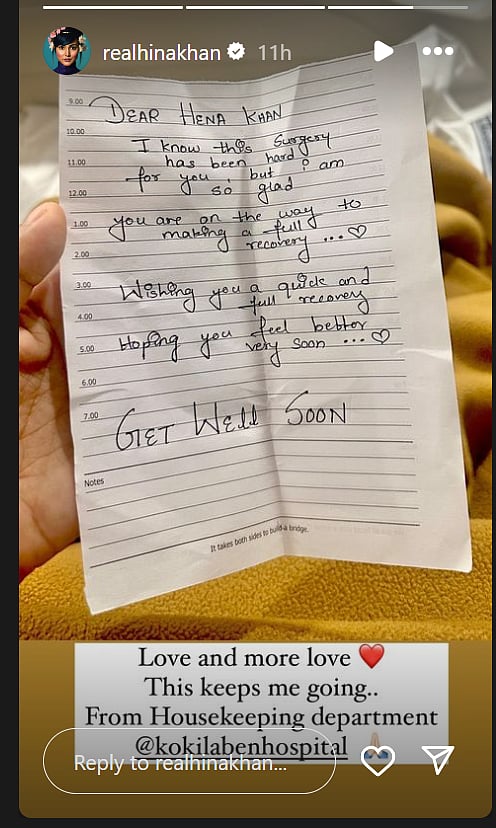 realhinakhan 11h
9.00
DEAR HENA KHAN
10.00
I know this Surgery
11.00
has been hard
for you, but i am
12.00
so glad
1.00
you are on the way to
making a full
2.00
recovery ...♡
3.00
Wishing you a quick and
full recovery
4.00
Hoping you feel better
5.00
very soon ...♡
6.00
7.00
GET WEll SOON
Notes
It takes both sides to build a bridge.
Love and more love ❤️
This keeps me going..
From Housekeeping department
@kokilabenhospital 🙏🏻
Reply to realhinakhan...